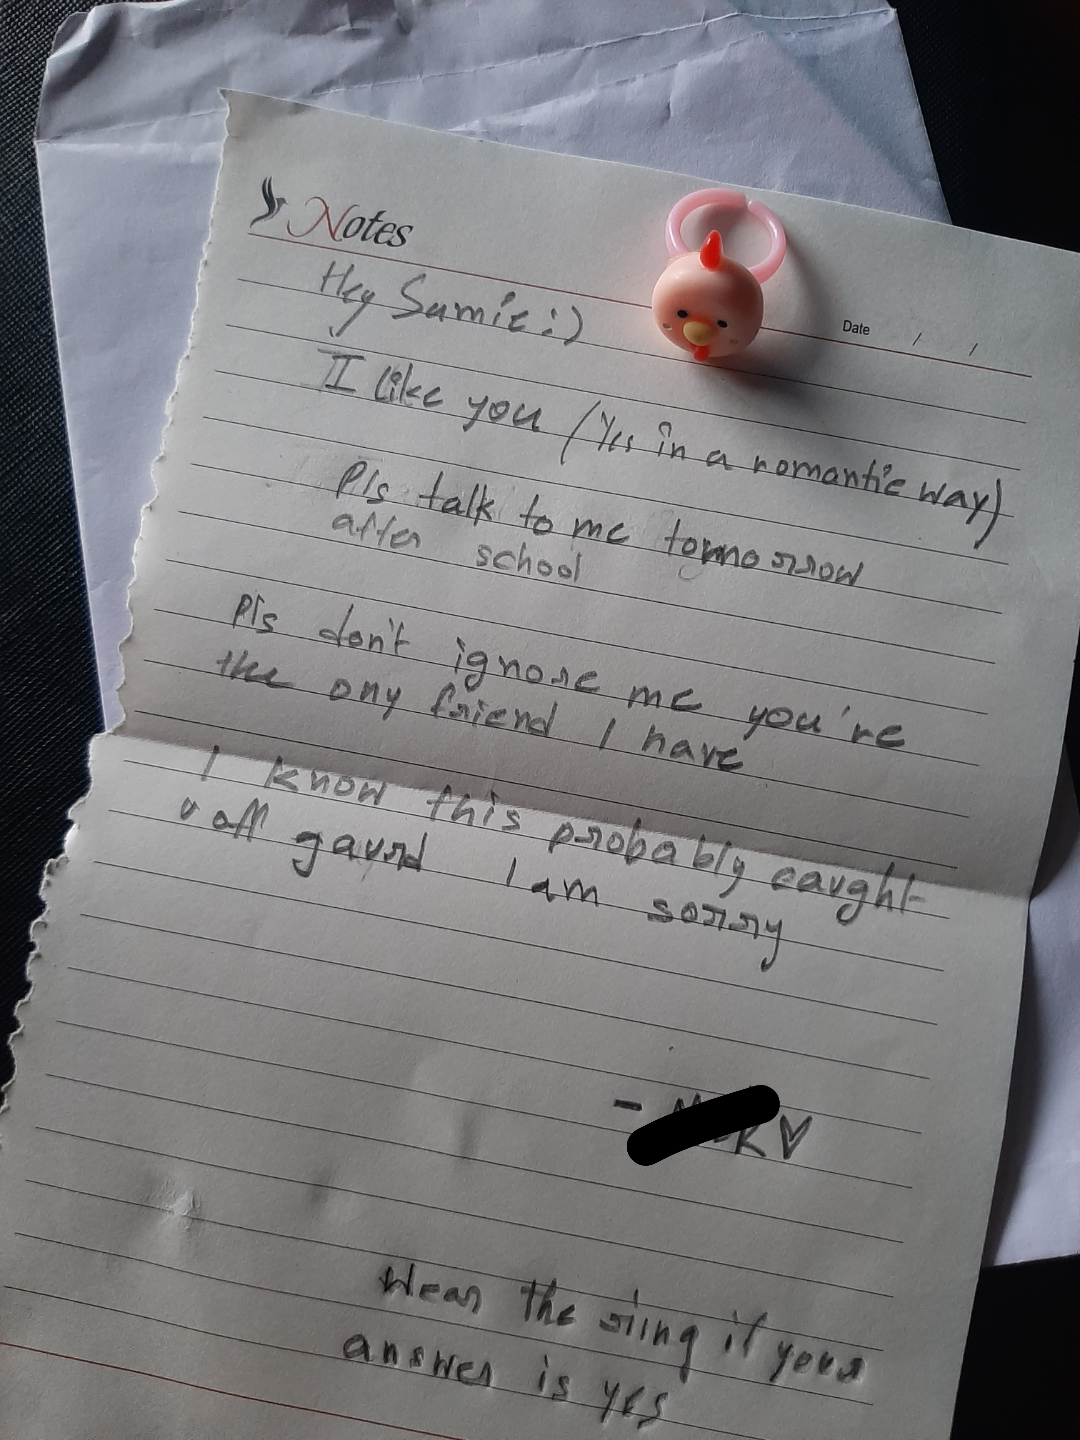 Notes
Date / /
Hey Sumie :)
I like you (Yes in a romantic way)
Pls talk to me tomorrow
after school
Pls don't ignore me you're
the ony friend I have
I know this probably caught
u off gaurd I am sorry
- K ♡
Wear the riing if your
answer is yes